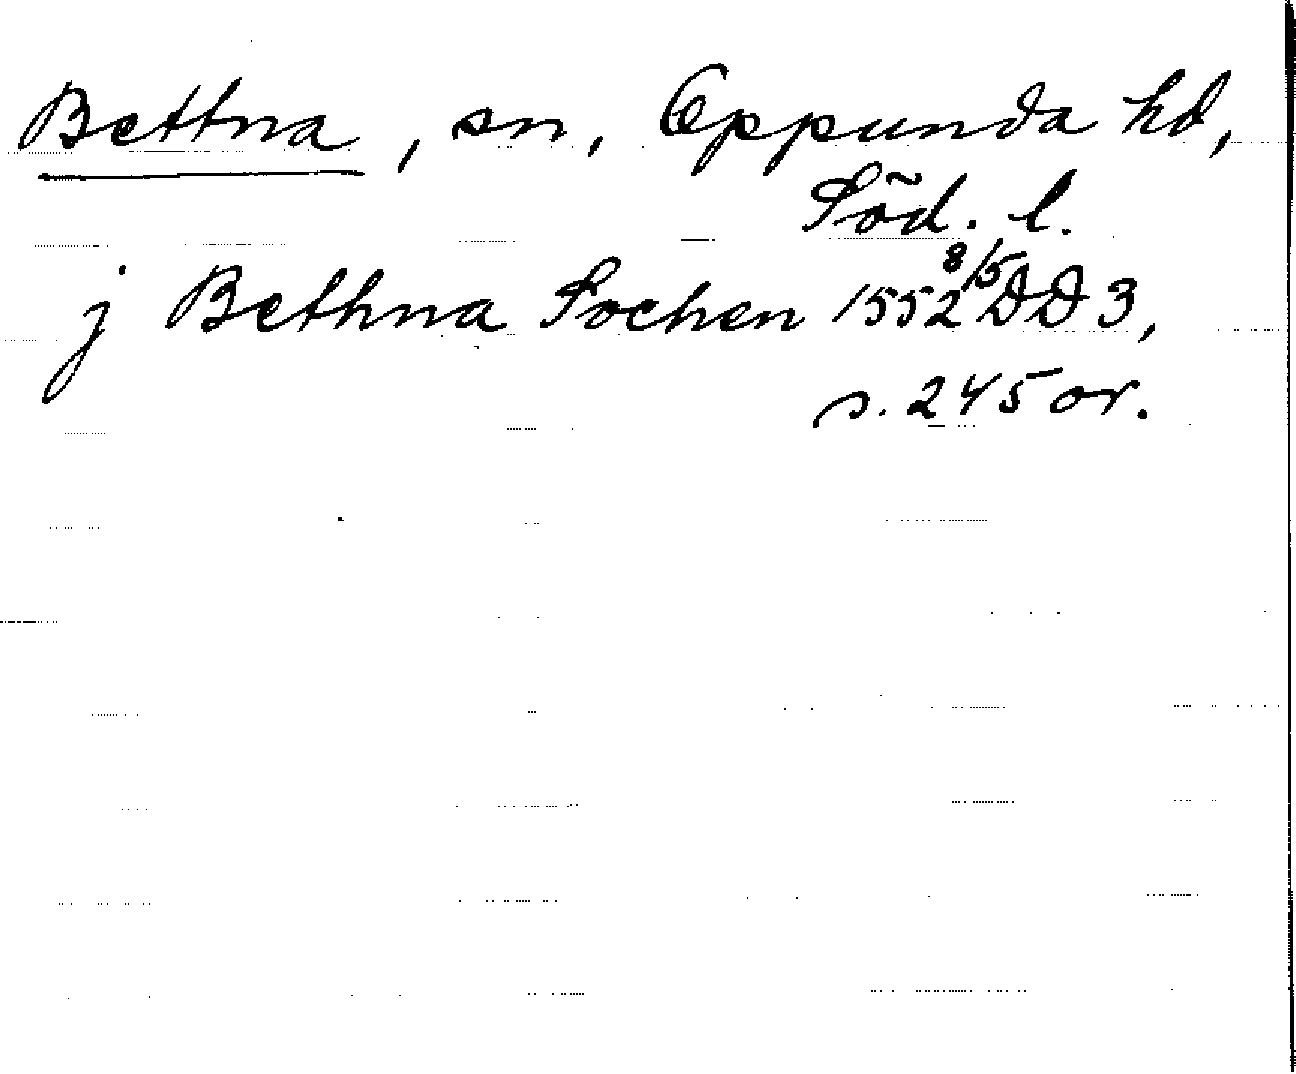 Bettna, sn, Oppunda hd,
Söd. l.
j Bethna Sochen 1552 8/5 DD 3,
s. 245 or.